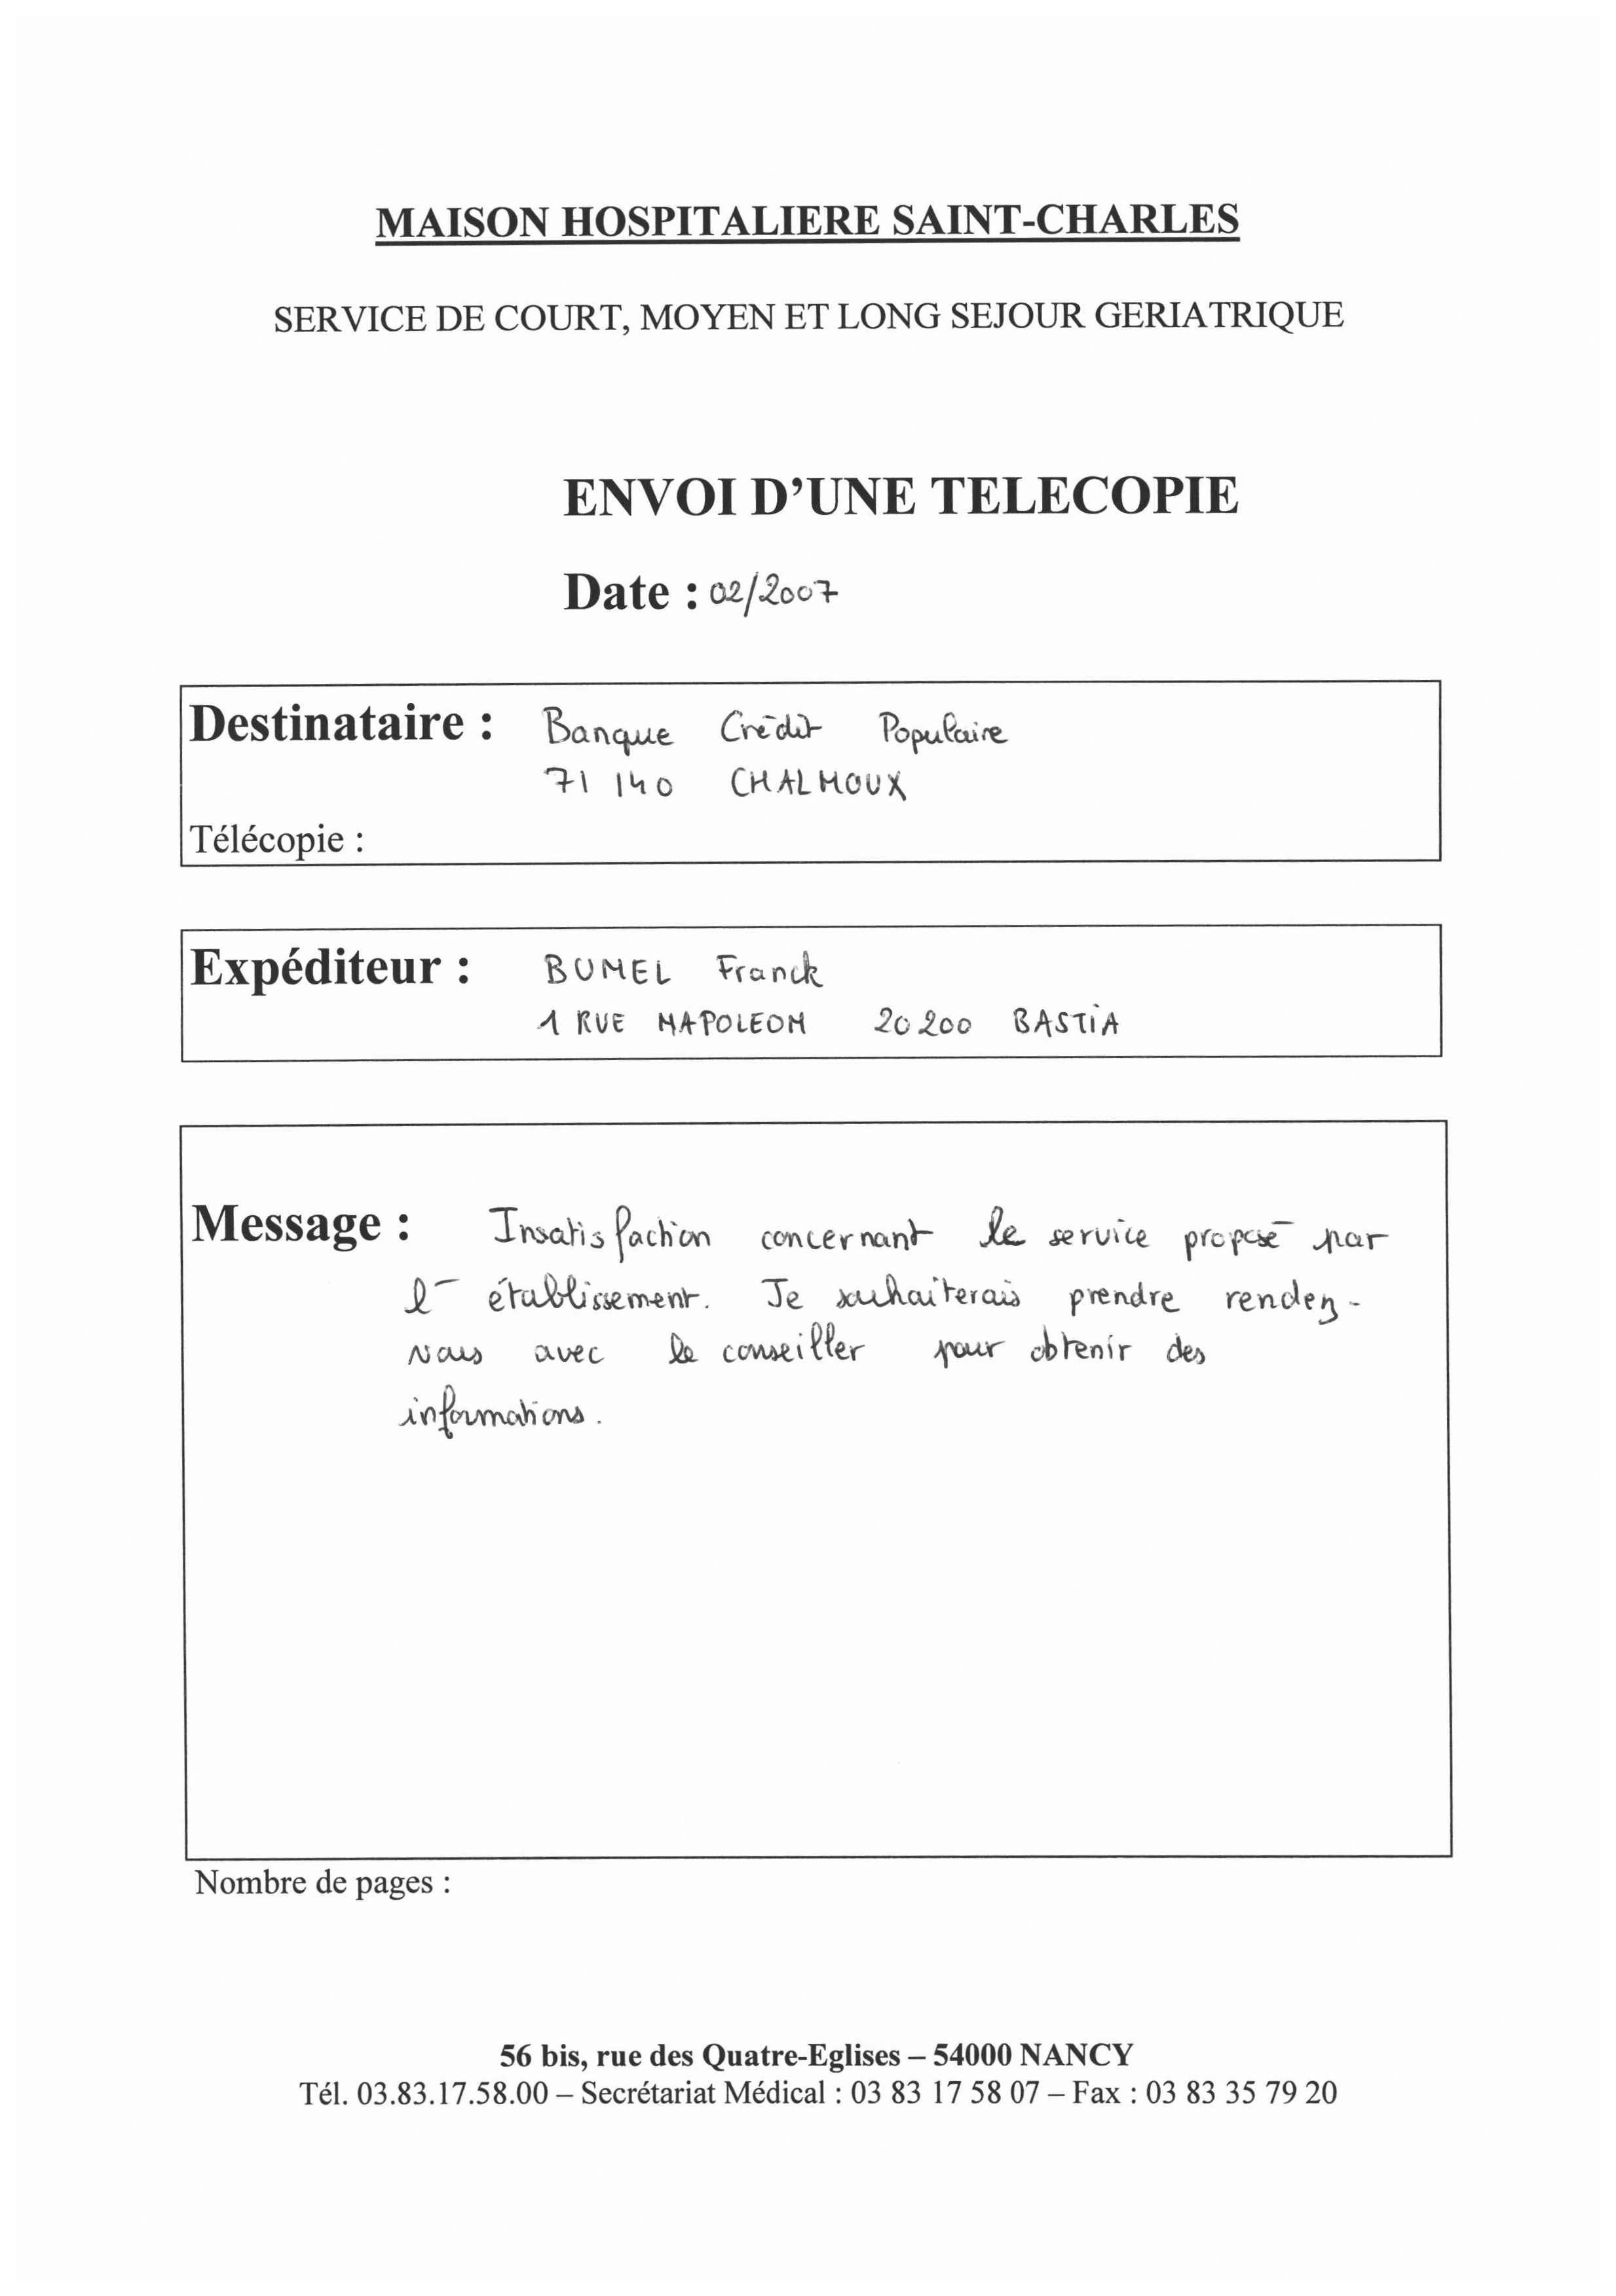 MAISON HOSPITALIERE SAINT-CHARLES
SERVICE DE COURT, MOYEN ET LONG SEJOUR GERIATRIQUE
ENVOI D'UNE TELECOPIE
Date : 02/2007
Destinataire : Banque Crédit Populaire
71 140 CHALMOUX
Télécopie :
Expéditeur : BUMEL Franck
1 RUE NAPOLEON 20200 BASTIA
Message : Insatisfaction concernant le service proposé par
l' établissement. Je souhaiterais prendre rendez-
vous avec le conseiller pour obtenir des
informations.
Nombre de pages :
56 bis, rue des Quatre-Eglises – 54000 NANCY
Tél. 03.83.17.58.00 – Secrétariat Médical : 03 83 17 58 07 – Fax : 03 83 35 79 20